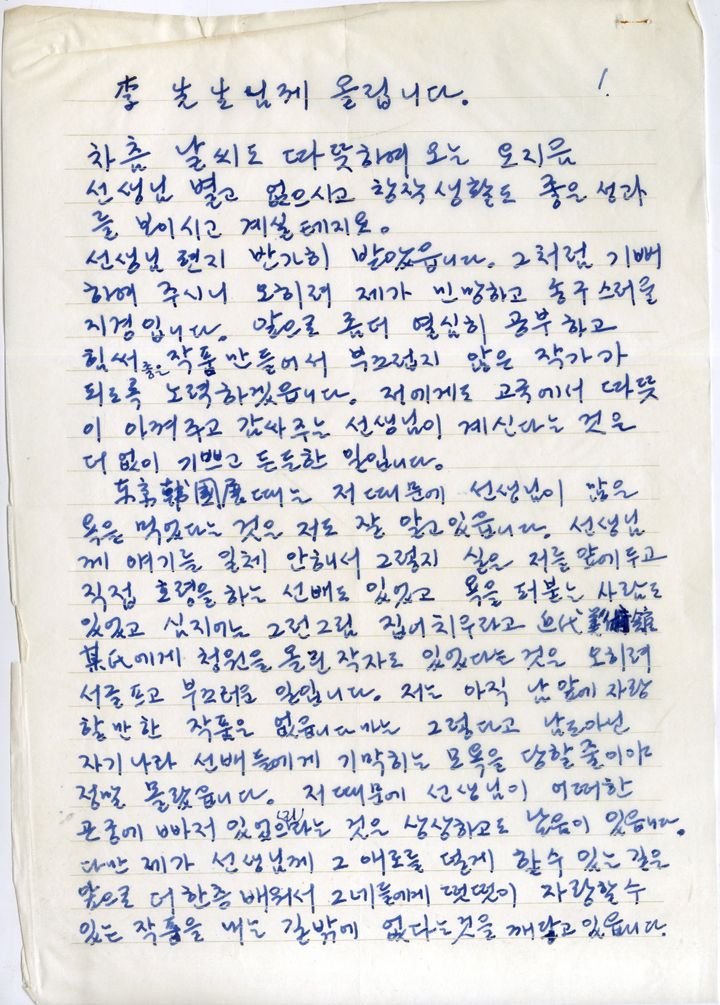 李 先生님께 올립니다. 1.
차츰 날씨도 따뜻하여 오는 요지음
선생님 별고 없으시고 창작생활도 좋은 성과
를 보이시고 계실테지요.
선생님 편지 반가히 받았읍니다. 그처럼 기뻐
하여 주시니 오히려 제가 민망하고 송구스러울
지경입니다. 앞으로 좀더 열심히 공부하고
힘써 좋은 작품 만들어서 부끄럽지 않은 작가가
되도록 노력하겠읍니다. 저에게도 고국에서 따뜻
이 아껴주고 감싸주는 선생님이 계신다는 것은
더없이 기쁘고 든든한 일입니다.
東京韓國展때는 저 때문에 선생님이 많은
욕을 먹었다는 것은 저도 잘 알고있읍니다. 선생님
께 얘기는 일체 안해서 그렇지 실은 저를 앞에 두고
직접 호령을 하는 선배도 있었고 욕을 퍼붇는 사람도
있었고 심지어는 그런그림 집어치우라고 近代美術館
某氏에게 청원을 올린 작자도 있었다는 것은 오히려
서글프고 부끄러운 일입니다. 저는 아직 남앞에 자랑
할만한 작품은 없읍니다마는 그렇다고 남도아닌
자기나라 선배들에게 기막히는 모욕을 당할줄이야
정말 몰랐읍니다. 저때문에 선생님이 어떠한
곤궁에 빠저 있었으리라는 것은 상상하고도 남음이 있읍니다.
다만 제가 선생님께 그 애로를 덜게 할수 있는 길은
앞으로 더한층 배워서 그네들에게 떳떳이 자랑할수
있는 작품을 내는 길밖에 없다는것을 깨닫고 있읍니다.